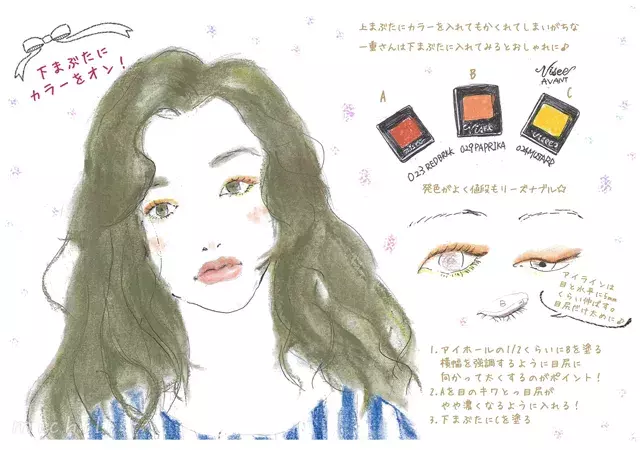 下まぶたに
カラーをオン！
上まぶたにカラーを入れてもかくれてしまいがちな
一重さんは下まぶたに入れてみるとおしゃれに♪
Visee
AVANT
A
B
C
023 REDBRICK
029 PAPRIKA
026 MUSTARD
発色がよく値段もリーズナブル☆
アイラインは
目と水平に5mm
くらい伸ばす。
目尻だけ太めに♪
B
1. アイホールの1/2くらいにBを塗る
横幅を強調するように目尻に
向かって太くするのがポイント！
2. Aを目のキワとっ目尻が
やや濃くなるように入れる！
3. 下まぶたにCを塗る